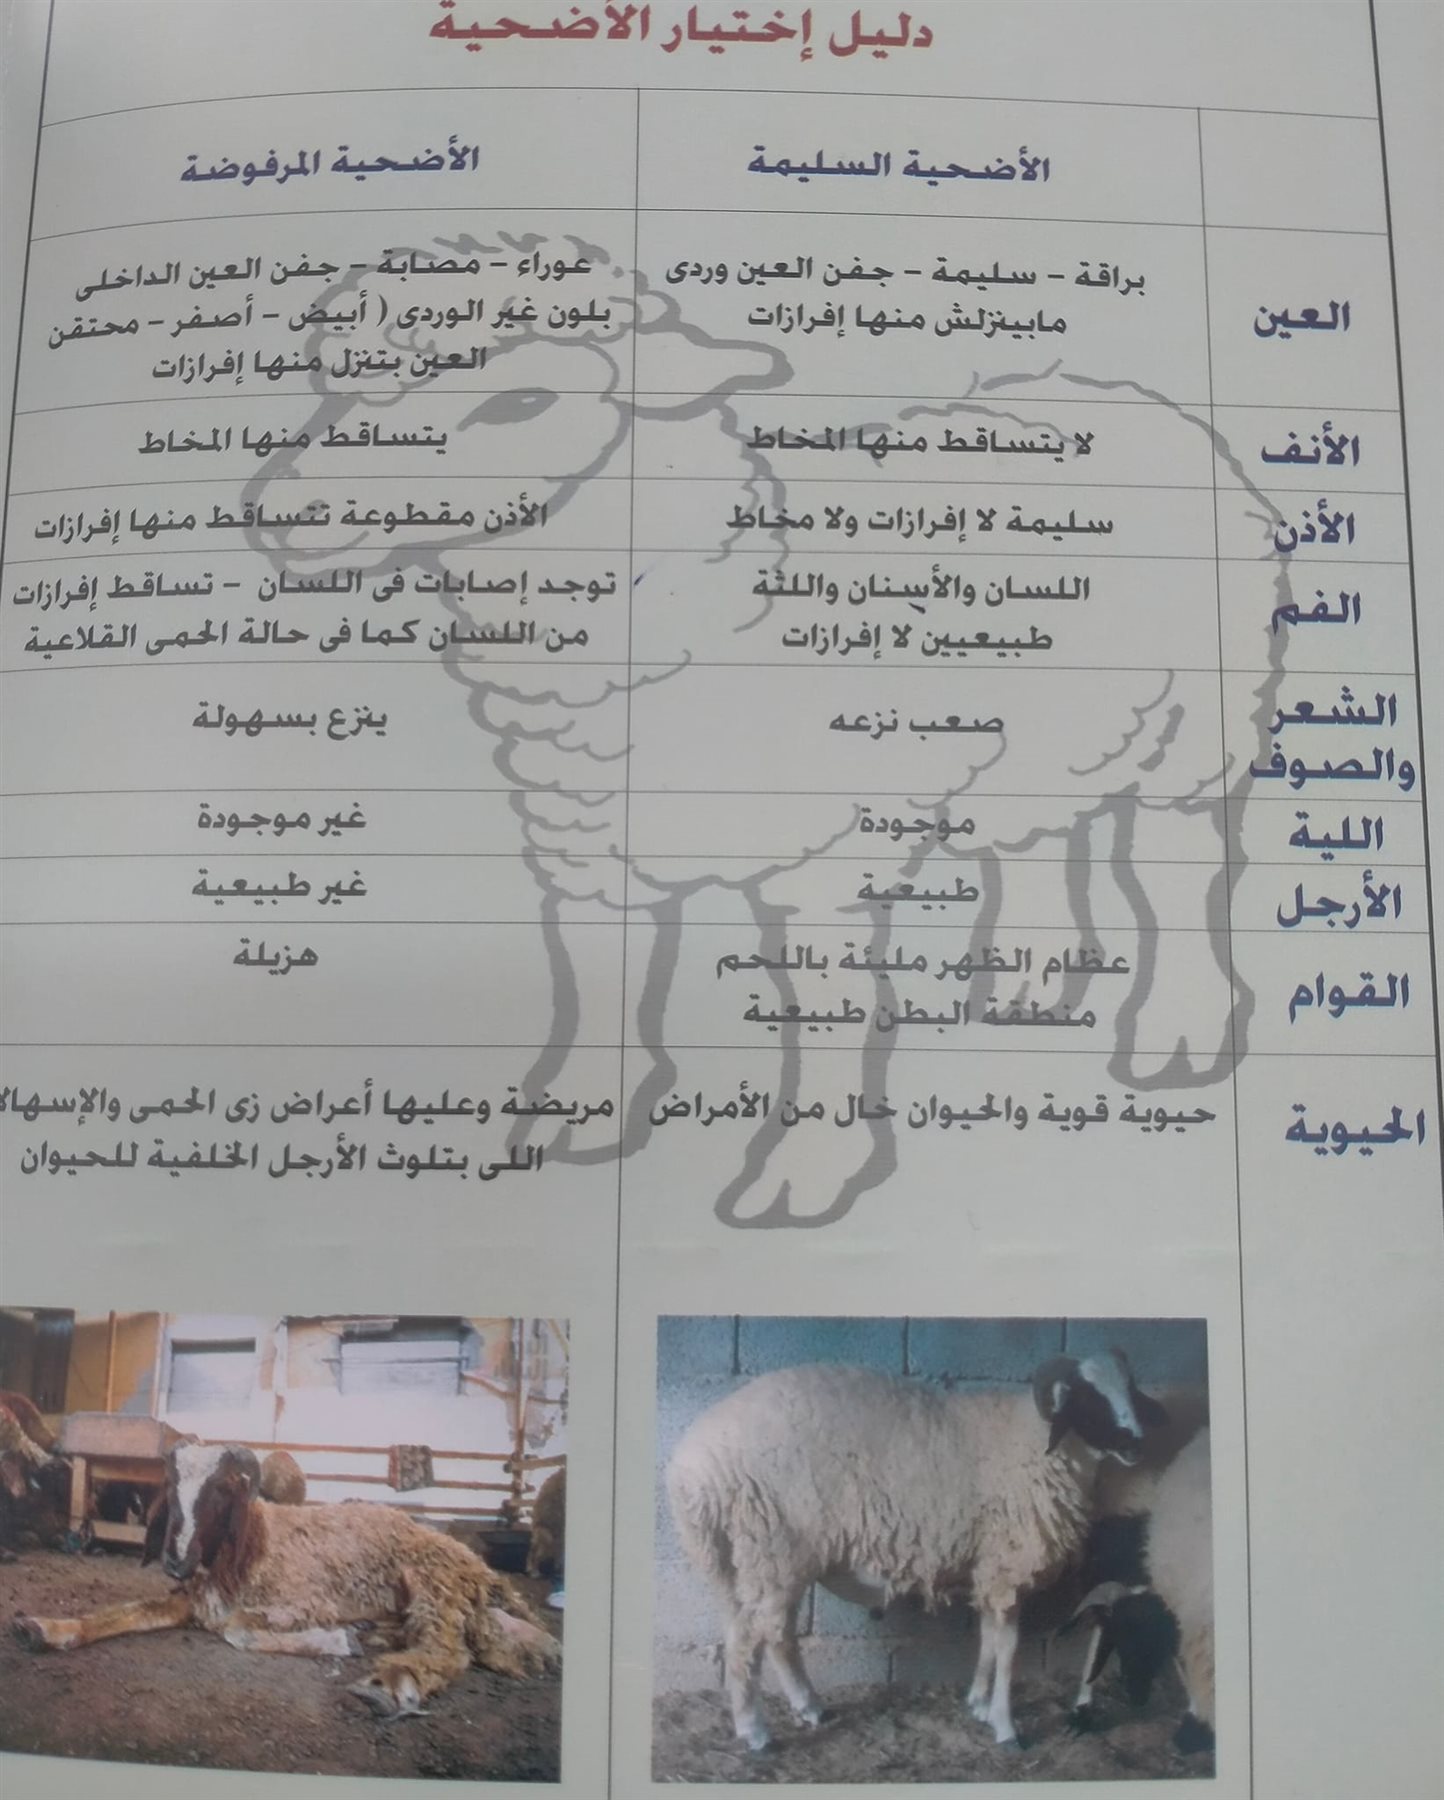 دليل إختيار الأضحية
الأضحية السليمة
الأضحية المرفوضة
العين
براقة - سليمة - جفن العين وردى
مابينزلش منها إفرازات
عوراء - مصابة - جفن العين الداخلى
بلون غير الوردى ( أبيض - أصفر - محتقن
العين بتنزل منها إفرازات
الأنف
لا يتساقط منها المخاط
يتساقط منها المخاط
الأذن
سليمة لا إفرازات ولا مخاط
الأذن مقطوعة تتساقط منها إفرازات
الفم
اللسان والأسنان واللثة
طبيعيين لا إفرازات
توجد إصابات فى اللسان - تساقط إفرازات
من اللسان كما فى حالة الحمى القلاعية
الشعر
والصوف
صعب نزعه
ينزع بسهولة
اللية
موجودة
غير موجودة
الأرجل
طبيعية
غير طبيعية
القوام
عظام الظهر مليئة باللحم
منطقة البطن طبيعية
هزيلة
الحيوية
حيوية قوية والحيوان خال من الأمراض
مريضة وعليها أعراض زى الحمى والإسهال
اللى بتلوث الأرجل الخلفية للحيوان